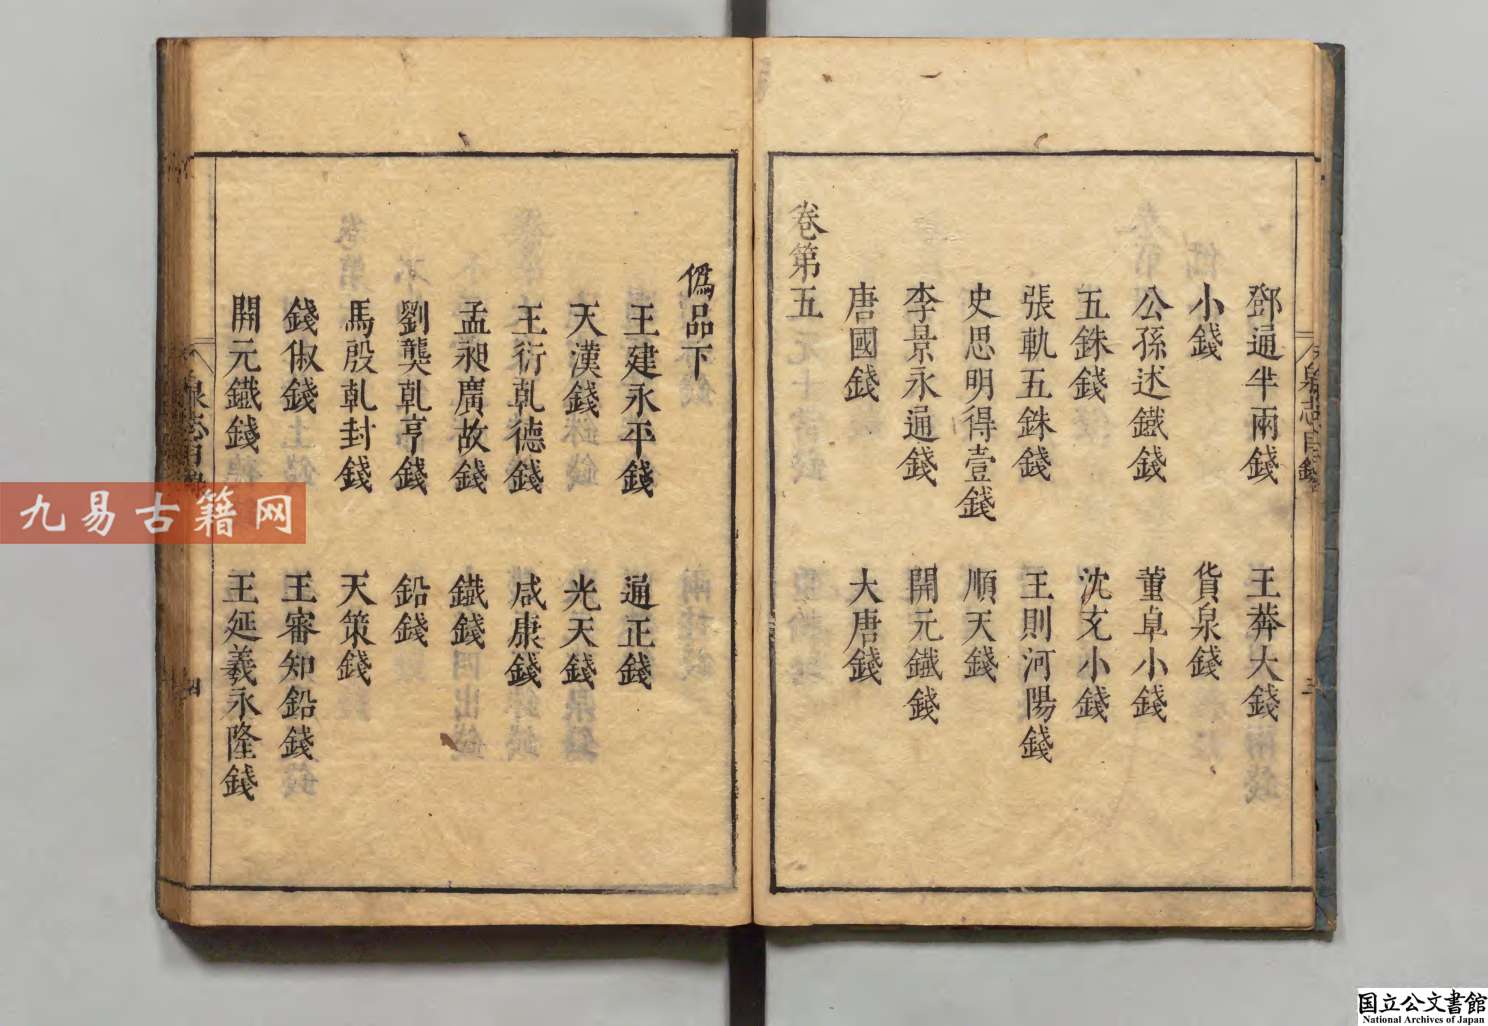 鄧通半兩錢　王莽大錢
小錢　貨泉錢
公孫述鐵錢　董卓小錢
五銖錢　沈充小錢
張軌五銖錢　王則河陽錢
史思明得壹錢　順天錢
李景永通錢　開元鐵錢
唐國錢　大唐錢
卷第五
偽品下
王建永平錢　通正錢
天漢錢　光天錢
王衍乹德錢　咸康錢
孟昶廣政錢　鐵錢
劉龑乹亨錢　鉛錢
馬殷乹封錢　天策錢
錢俶錢　王審知鉛錢
開元鐵錢　王延羲永隆錢
泉志目錄
三
泉志目錄
四
九易古籍网
国立公文書館
National Archives of Japan